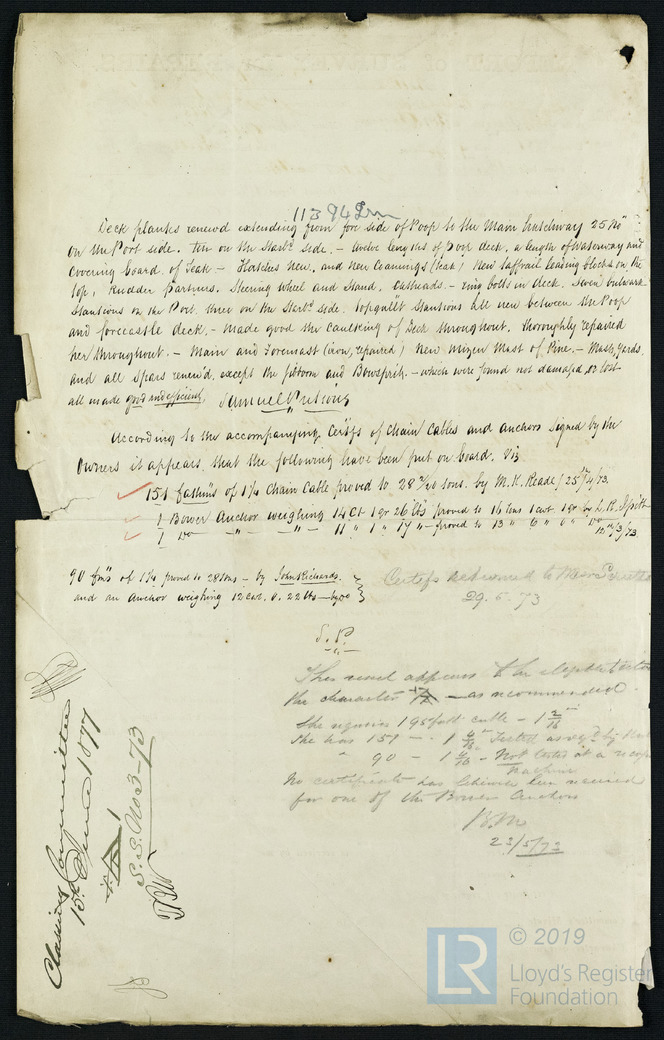 11394 Lrn
Deck planks renewd extending from fore side of Poop to the Main hatchway 25 No
on the Port side. ten on the Starbd side. – twelve lengths of poop deck, a length of waterway and
Covering board of Teak – Hatches New, and New Coamings (teak) New taffrail leading blocks on the
top, Rudder partners. Steering wheel and Stand. Catheads. – ring bolts in deck. Seven bulwark
Stantions on the Port. three on the Starbd side. topgallt Stantions all new between the Poop
and forecastle deck. – made good the Caulking of Deck throughout. thoroughly repaired
her throughout. – Main and Foremast (iron, repaired) New Mizen Mast of Pine. – Masts, Yards,
and all Spars renew'd, except the jibboom and Bowsprit. – which were found not damaged, or lost
all made good and efficient. Samuel Pretious
According to the accompanying Certifs of Chain Cables and anchors Signed by the
Owners it appears that the following have been put on board. Viz
151 fathms of 1 4/16 Chain Cable proved to 28 tons. by M. K. Reade / 25/4/73.
1 Bower Anchor weighing 14 Ct 1 qr 26 lbs proved to 16 tons 1 cwt 1 qr by
1 Do " " 11 " 1 " 17 " – proved to 13 " 6 " 0 " Do /3/73.
90 fms of 1 4/16 proved to 28 tons – by John Richards.
and an Anchor weighing 12 cwt. 0. 22 lbs – by Do
Certifs returned to Messrs
29. 5. 73
S. P.
This vessel appears to be eligible
the character – as recommended.
She requires 195 fath cable – 1 2/16
She has 151 – 1 4/16 Tested as reqd by
" 90 – 1 4/16 – Not tested at a
machine
No certificate has likewise been received
for one of the Bower Anchors
22/5/73
Classing Committee
15th June 1877
S.S. No 3-73
LR
© 2019
Lloyd's Register
Foundation